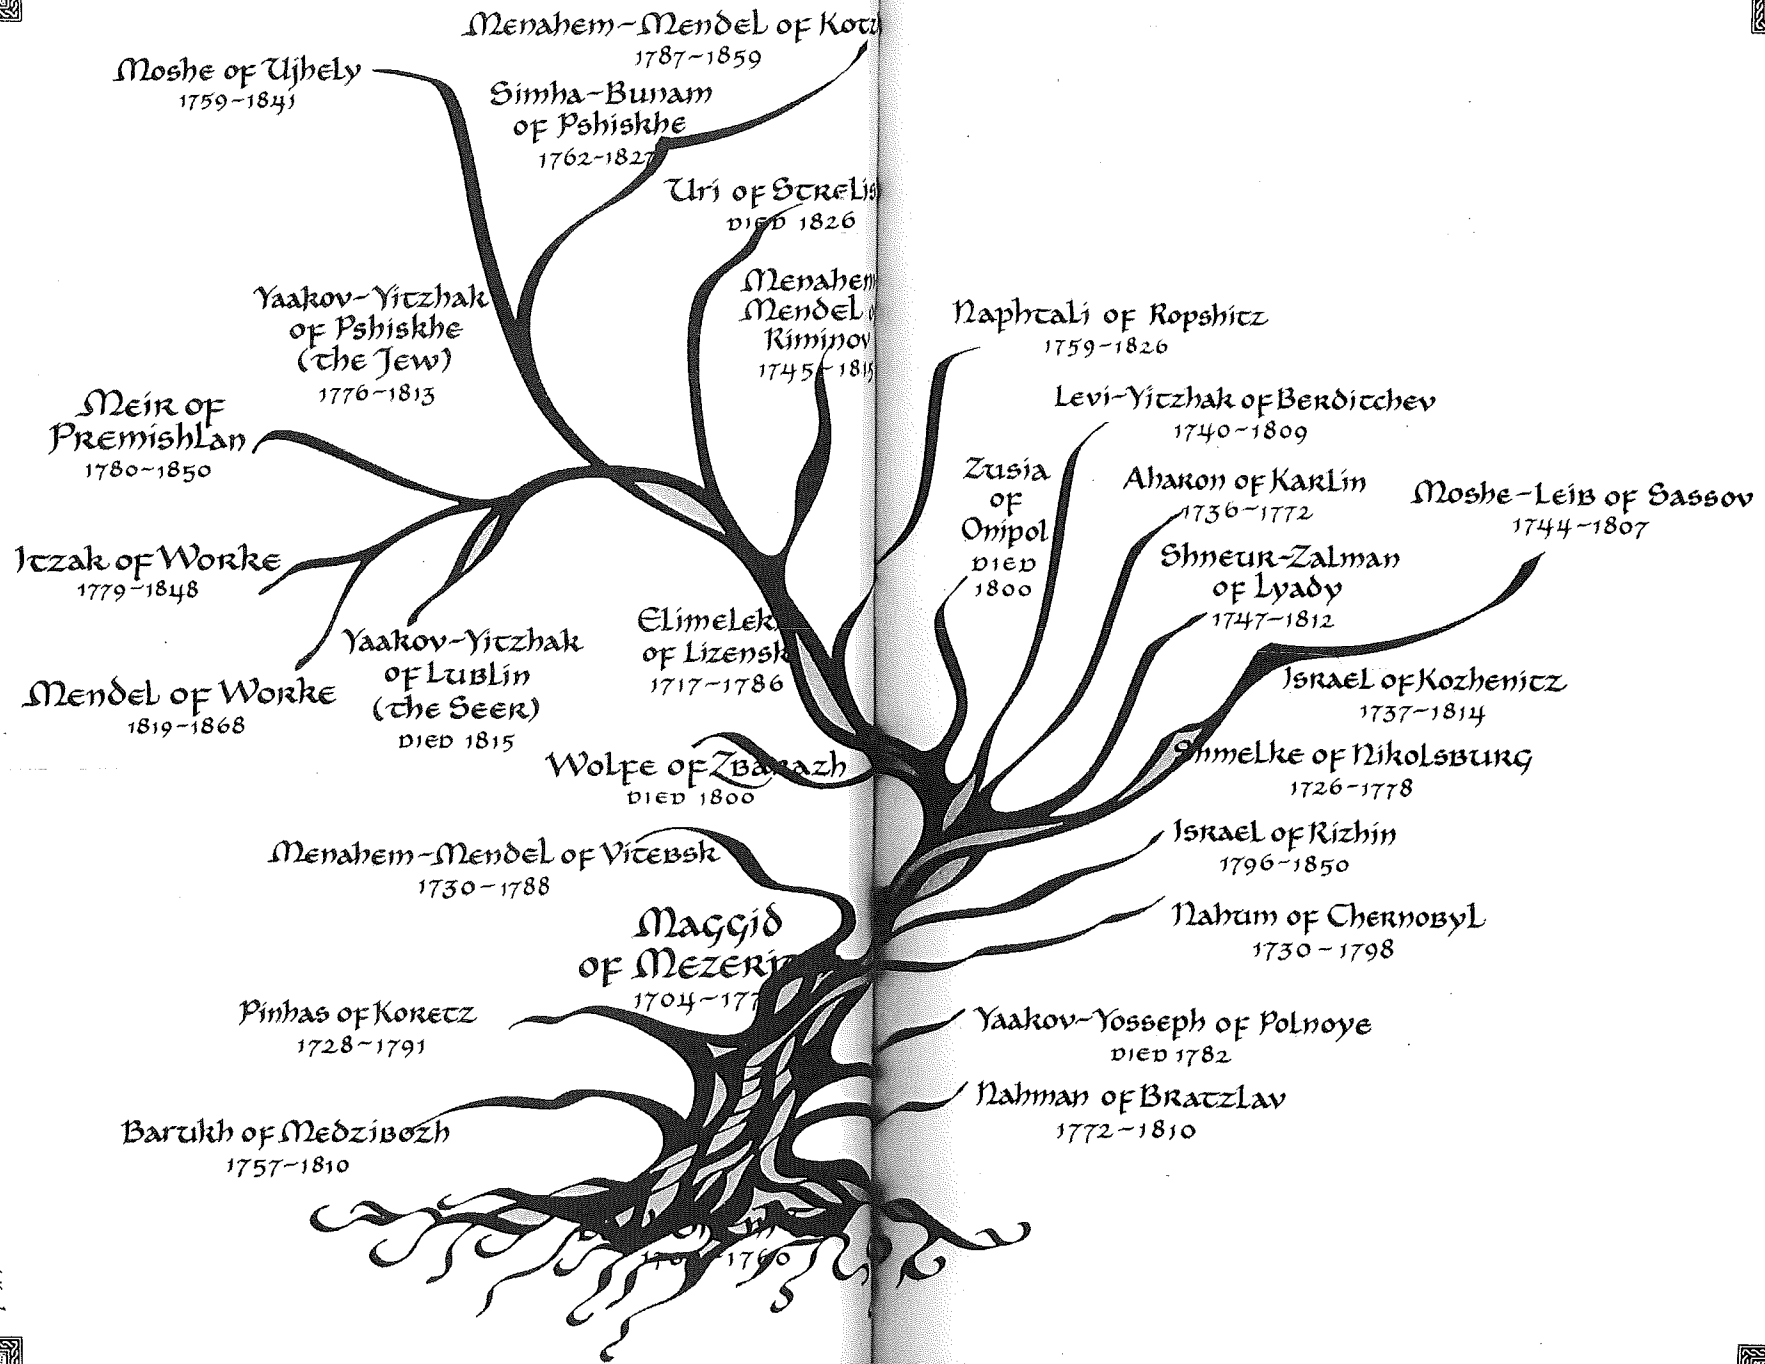 Menahem-Mendel of
1787-1859
Moshe of Ujhely
1759-1841
Simha-Bunam
of Pshiskhe
1762-1827
Uri of
DIED 1826
Yaakov-Yitzhak
of Pshiskhe
(the Jew)
1776-1813
Mendel
Riminov
1745-
Naphtali of Ropshitz
1759-1826
Meir of
Premishlan
1780-1850
Levi-Yitzhak of Berditchev
1740-1809
Zusia
of
Onipol
DIED
1800
Aharon of Karlin
1736-1772
Moshe-Leib of Sassov
1744-1807
Itzak of Worke
1779-1848
Shneur-Zalman
of Lyady
1747-1812
Yaakov-Yitzhak
of Lublin
(the Seer)
DIED 1815
Elimelek
of
1717-1786
Mendel of Worke
1819-1868
Israel of Kozhenitz
1737-1814
Wolfe of Zbarazh
DIED 1800
Shmelke of Nikolsburg
1726-1778
Menahem-Mendel of Vitebsk
1730-1788
Israel of Rizhin
1796-1850
Maggid
of
1704-
Nahum of Chernobyl
1730-1798
Pinhas of Koretz
1728-1791
Yaakov-Yosseph of Polnoye
DIED 1782
Barukh of Medzibozh
1757-1810
Nahman of Bratzlav
1772-1810